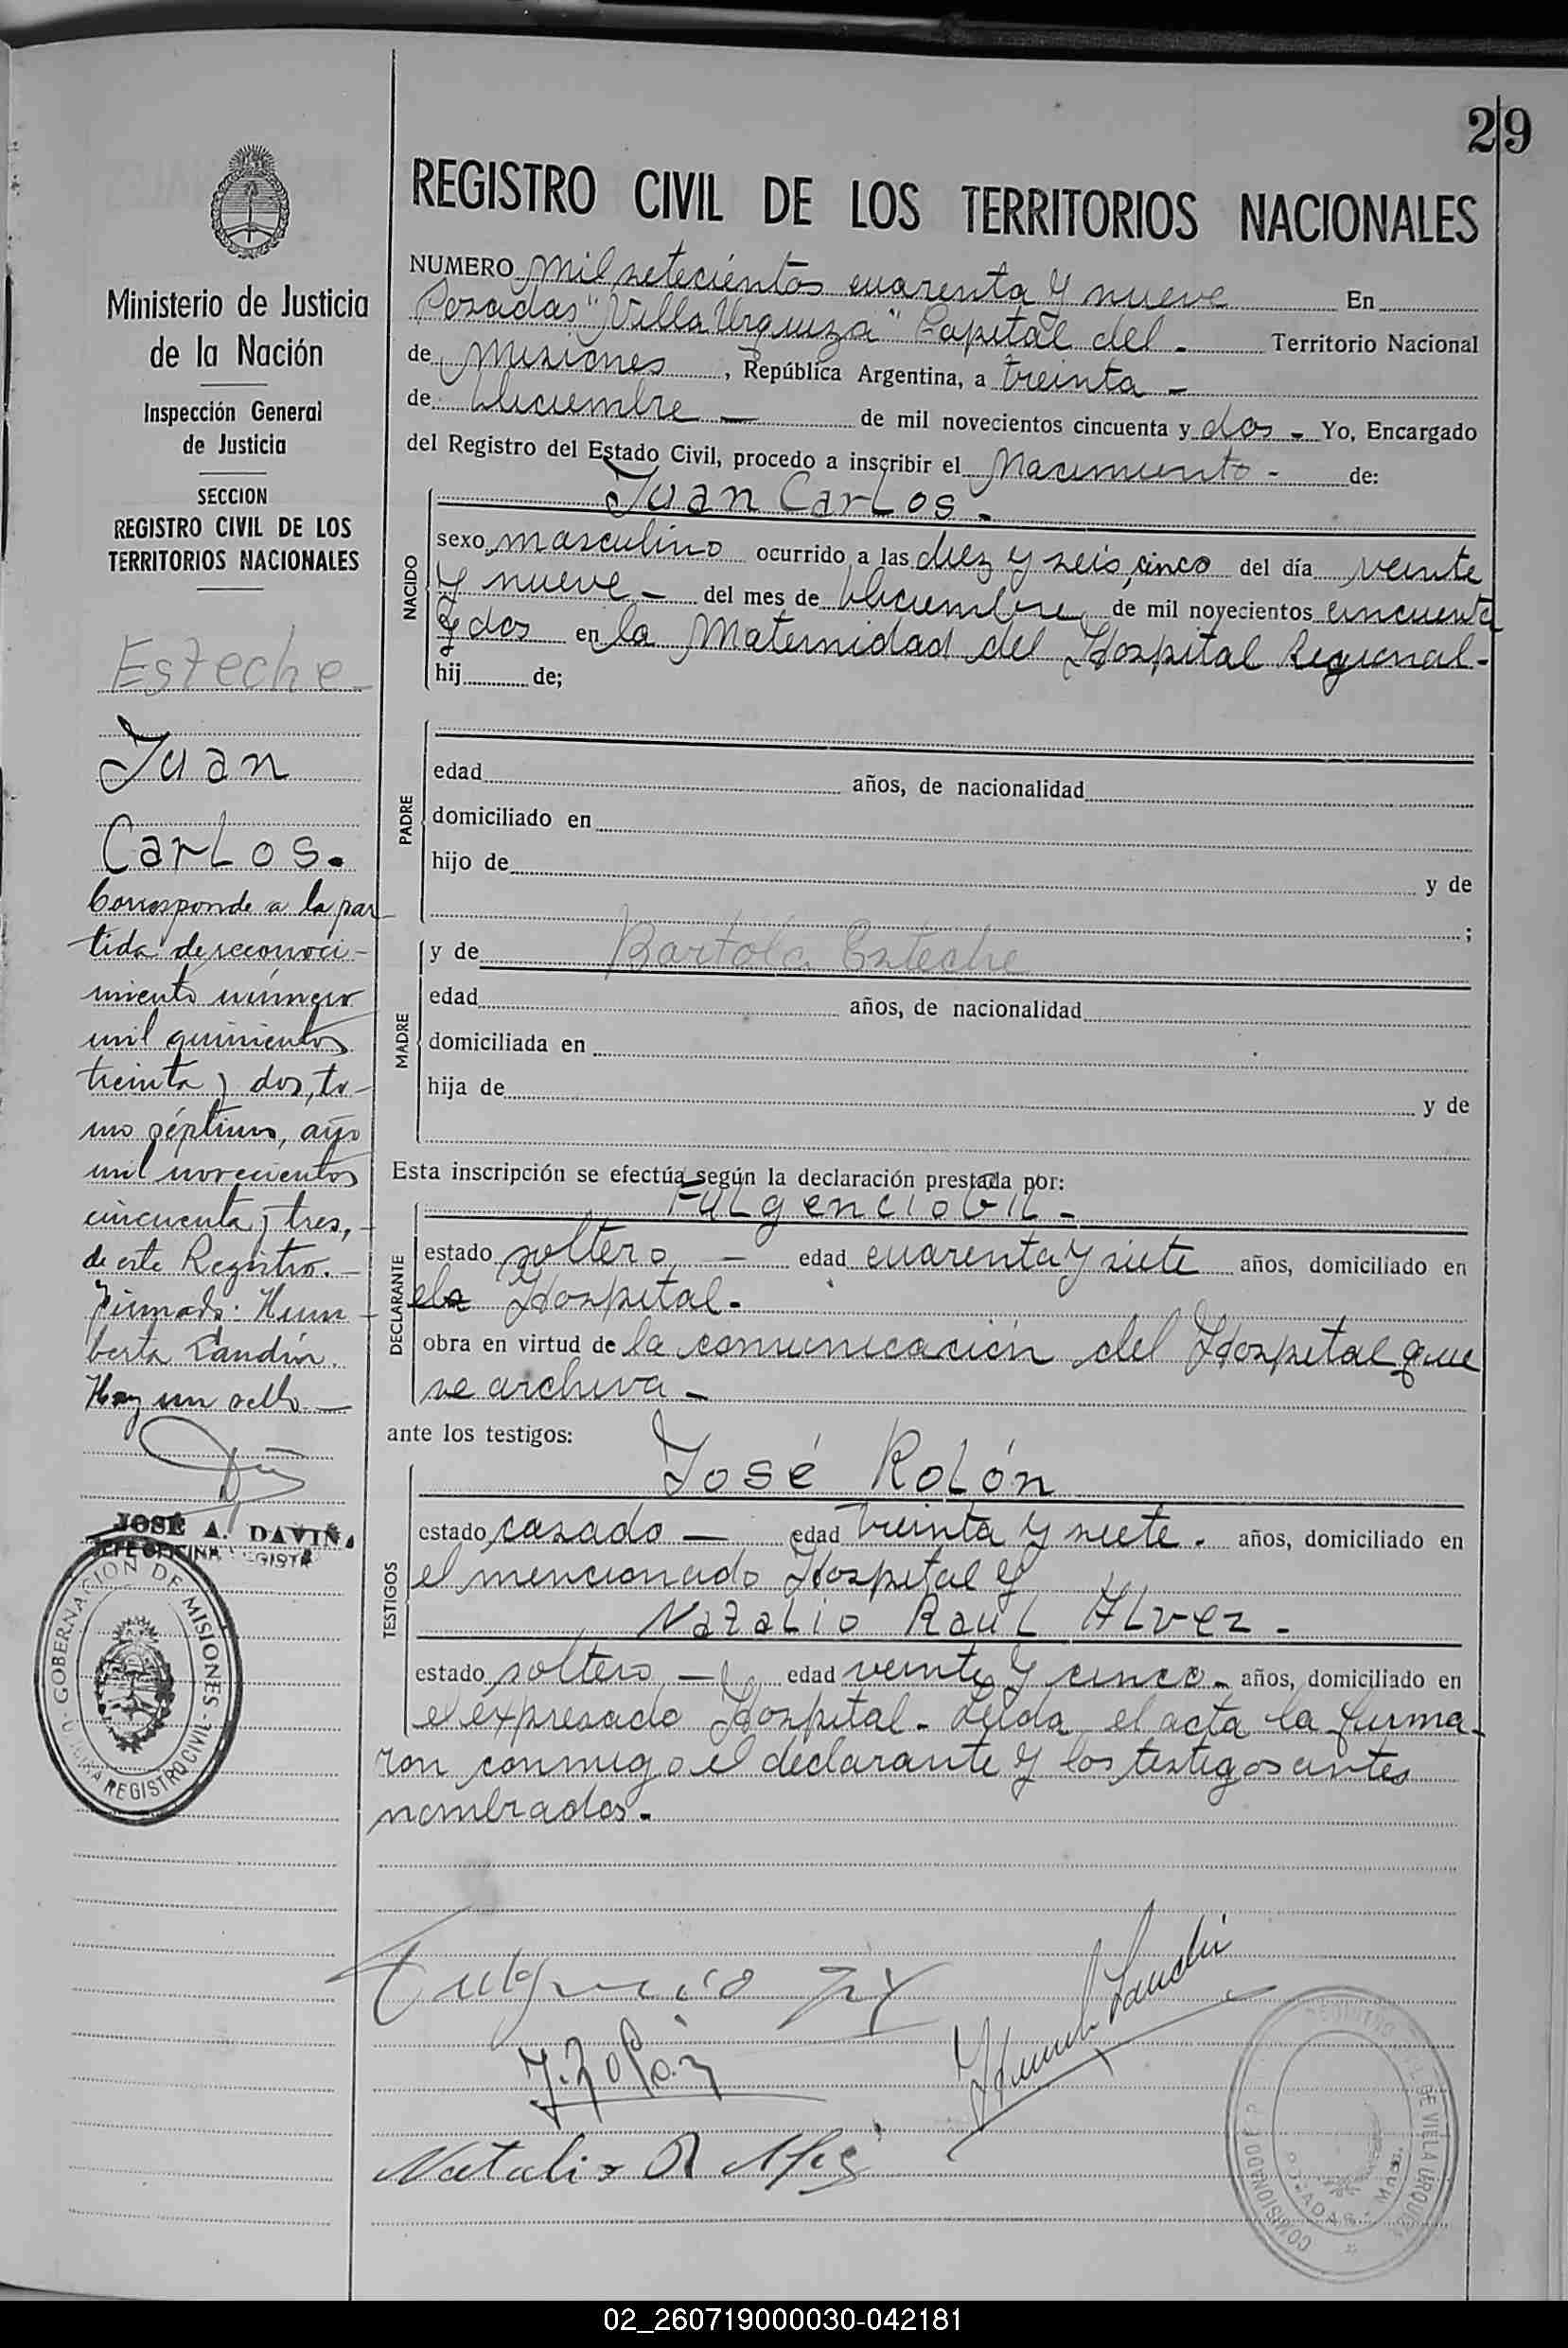 29
REGISTRO CIVIL DE LOS TERRITORIOS NACIONALES
Ministerio de Justicia
de la Nación
Inspección General
de Justicia
SECCION
REGISTRO CIVIL DE LOS
TERRITORIOS NACIONALES
Esteche
Juan
Carlos.
Corresponde a la par
tida de reconoci-
miento número
mil quinientos
treinta y dos, to-
mo séptimo, año
mil novecientos
cincuenta y tres,
de este Registro.-
Firmado: Hum-
berto Landin.
Hay un sello-
JOSÉ A. DAVIÑA
JEFE OFICINA REGISTRO
GOBERNACION DE MISIONES
OFICINA REGISTRO CIVIL
NUMERO mil setecientos cuarenta y nueve En
Posadas "Villa Urquiza" Capital del - Territorio Nacional
de Misiones, República Argentina, a treinta -
de Diciembre - de mil novecientos cincuenta y dos - Yo, Encargado
del Registro del Estado Civil, procedo a inscribir el Nacimiento - de:
Juan Carlos.-
NACIDO
sexo masculino ocurrido a las diez y seis, cinco del día veinte
y nueve - del mes de Diciembre de mil novecientos cincuenta
y dos en la Maternidad del Hospital Regional-
hij de;
PADRE
edad años, de nacionalidad
domiciliado en
hijo de y de
;
MADRE
y de Bartola Esteche
edad años, de nacionalidad
domiciliada en
hija de y de
Esta inscripción se efectúa según la declaración prestada por:
FULgencio Gil-
DECLARANTE
estado soltero - edad cuarenta y siete años, domiciliado en
el Hospital.
obra en virtud de la comunicación del Hospital que
se archiva -
ante los testigos:
José Rolón
TESTIGOS
estado casado - edad treinta y siete. años, domiciliado en
el mencionado Hospital y
Natalio Raul Alvez.-
estado soltero - edad veinte y cinco- años, domiciliado en
el expresado Hospital- Leída el acta la firma-
ron conmigo el declarante y los testigos antes
nombrados.-
Fulgencio Gil
J. Rolón
Natalio R
02_260719000030-042181